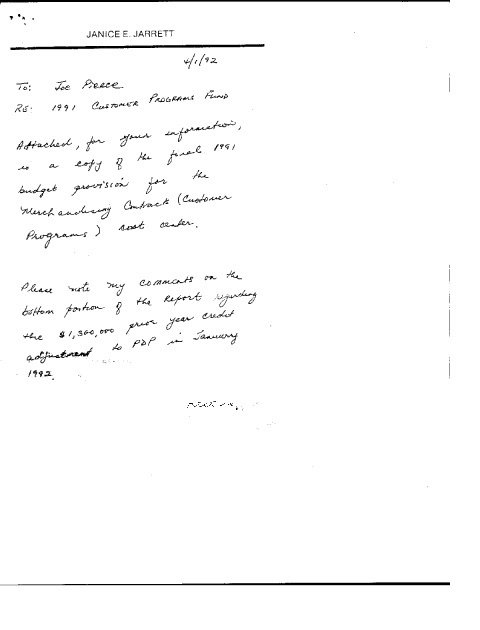 JANICE E. JARRETT
4/1/92
To: Joe Preece
RE: 1991 CUSTOMER PROGRAMS FUND
Attached, for your information,
is a copy of the final 1991
budget provision for the
Merchandising Contracts (Customer
Programs) cost center.
Please note my comments on the
bottom portion of the Report regarding
the $1,300,000 prior year credit
adjustment to PDP in January
1992.